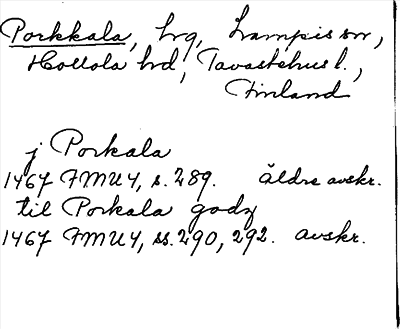 Porkkala, hrg, Lampis sn,
Hollola hd, Tavastehus l.,
Finland
j Porkala
1467 FMU 4, s. 289. äldre avskr.
til Porkala godz
1467 FMU 4, ss. 290, 292. avskr.